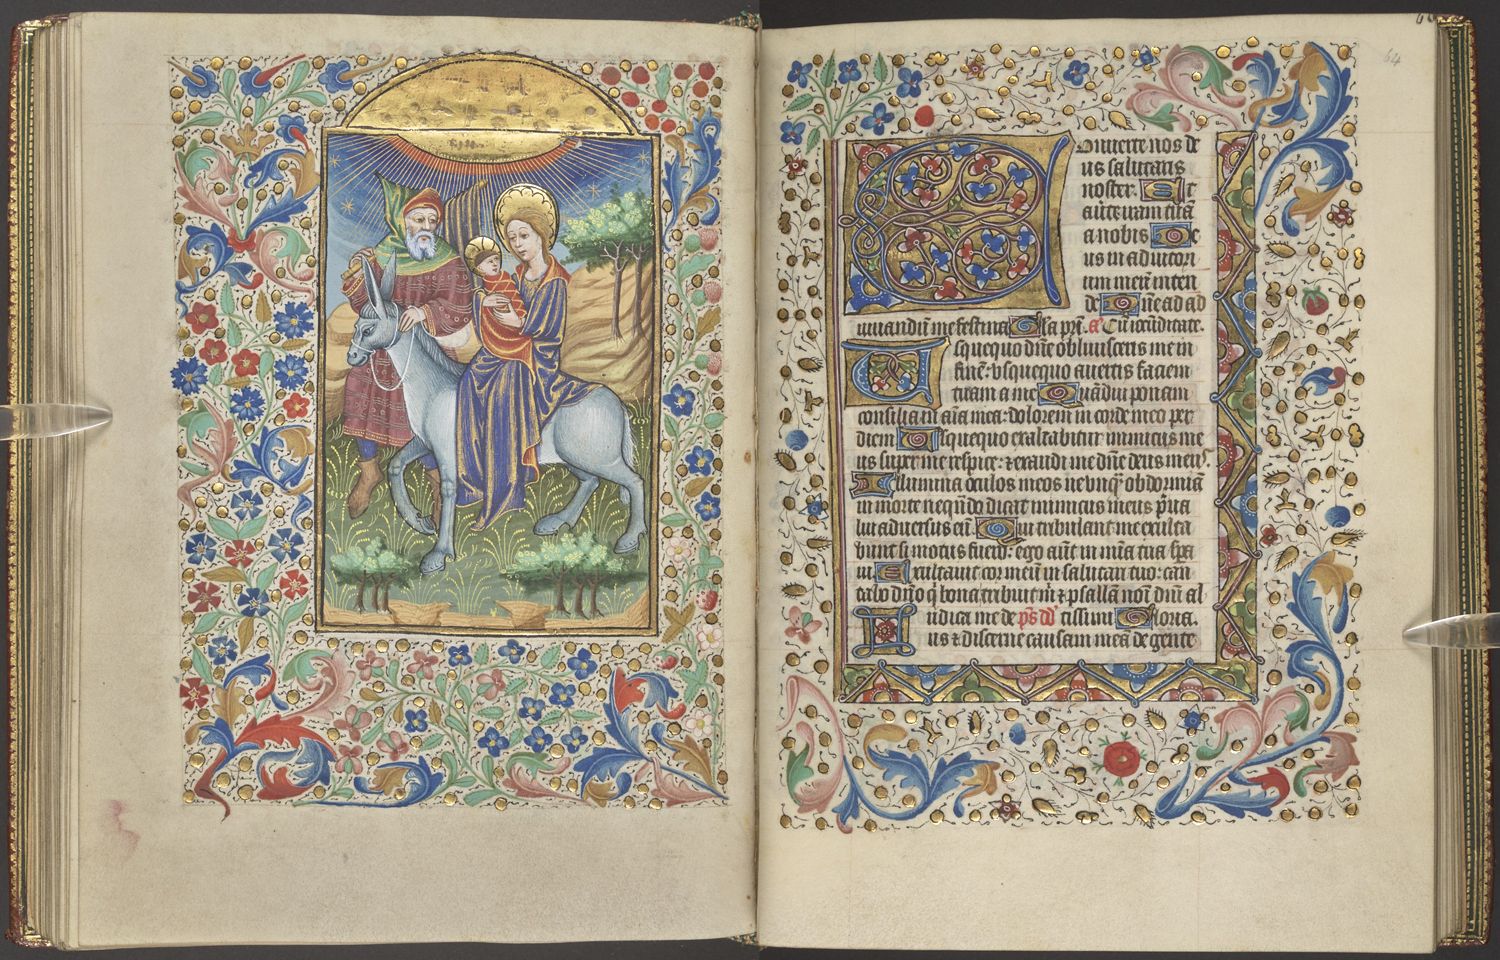 64
Onuerte nos de
us salutaris
noster. Et
auerte iram tuā
a nobis De
us in adiutori
um meū inten
de Dn̄e ad ad
iuuandū me festina Gl̄a pr̄i. añ Cū iocūditate.
Usquequo dn̄e obliuisceris me in
finē: vsquequo auertis faciem
tuam a me Quādiu ponam
consilia in aīa mea: dolorem in corde meo per
diem Usquequo exaltabitur inimicus me
us super me respice: ⁊ exaudi me dn̄e deus meus.
Illumina oculos meos ne vnqꝫ obdormiā
in morte nequādo dicat inimicus meus p̄ua
lui aduersus eū Qui tribulant me exulta
bunt si motus fuero: ego aūt in mīa tua spa
ui Exultauit cor meū in salutari tuo: can
tabo dn̄o q̄ bona tribuit m̄ ⁊ psallā noī dn̄i al
tissimi Gloria. p̄s dd̄ Iudica me de
us ⁊ discerne causam meā de gente